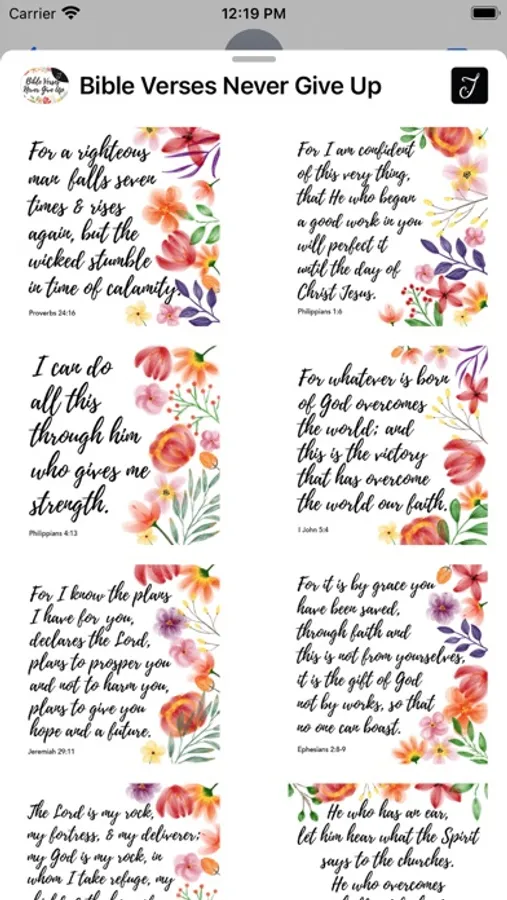 Carrier 12:19 PM
Bible Verses Never Give Up
Bible Verses Never Give Up
For a righteous
man falls seven
times & rises
again, but the
wicked stumble
in time of calamity.
Proverbs 24:16
For I am confident
of this very thing,
that He who began
a good work in you
will perfect it
until the day of
Christ Jesus.
Philippians 1:6
I can do
all this
through him
who gives me
strength.
Philippians 4:13
For whatever is born
of God overcomes
the world; and
this is the victory
that has overcome
the world our faith.
I John 5:4
For I know the plans
I have for you,
declares the Lord,
plans to prosper you
and not to harm you,
plans to give you
hope and a future.
Jeremiah 29:11
For it is by grace you
have been saved,
through faith and
this is not from yourselves,
it is the gift of God
not by works, so that
no one can boast.
Ephesians 2:8-9
The Lord is my rock,
my fortress, & my deliverer;
my God is my rock, in
whom I take refuge, my
He who has an ear,
let him hear what the Spirit
says to the churches.
He who overcomes